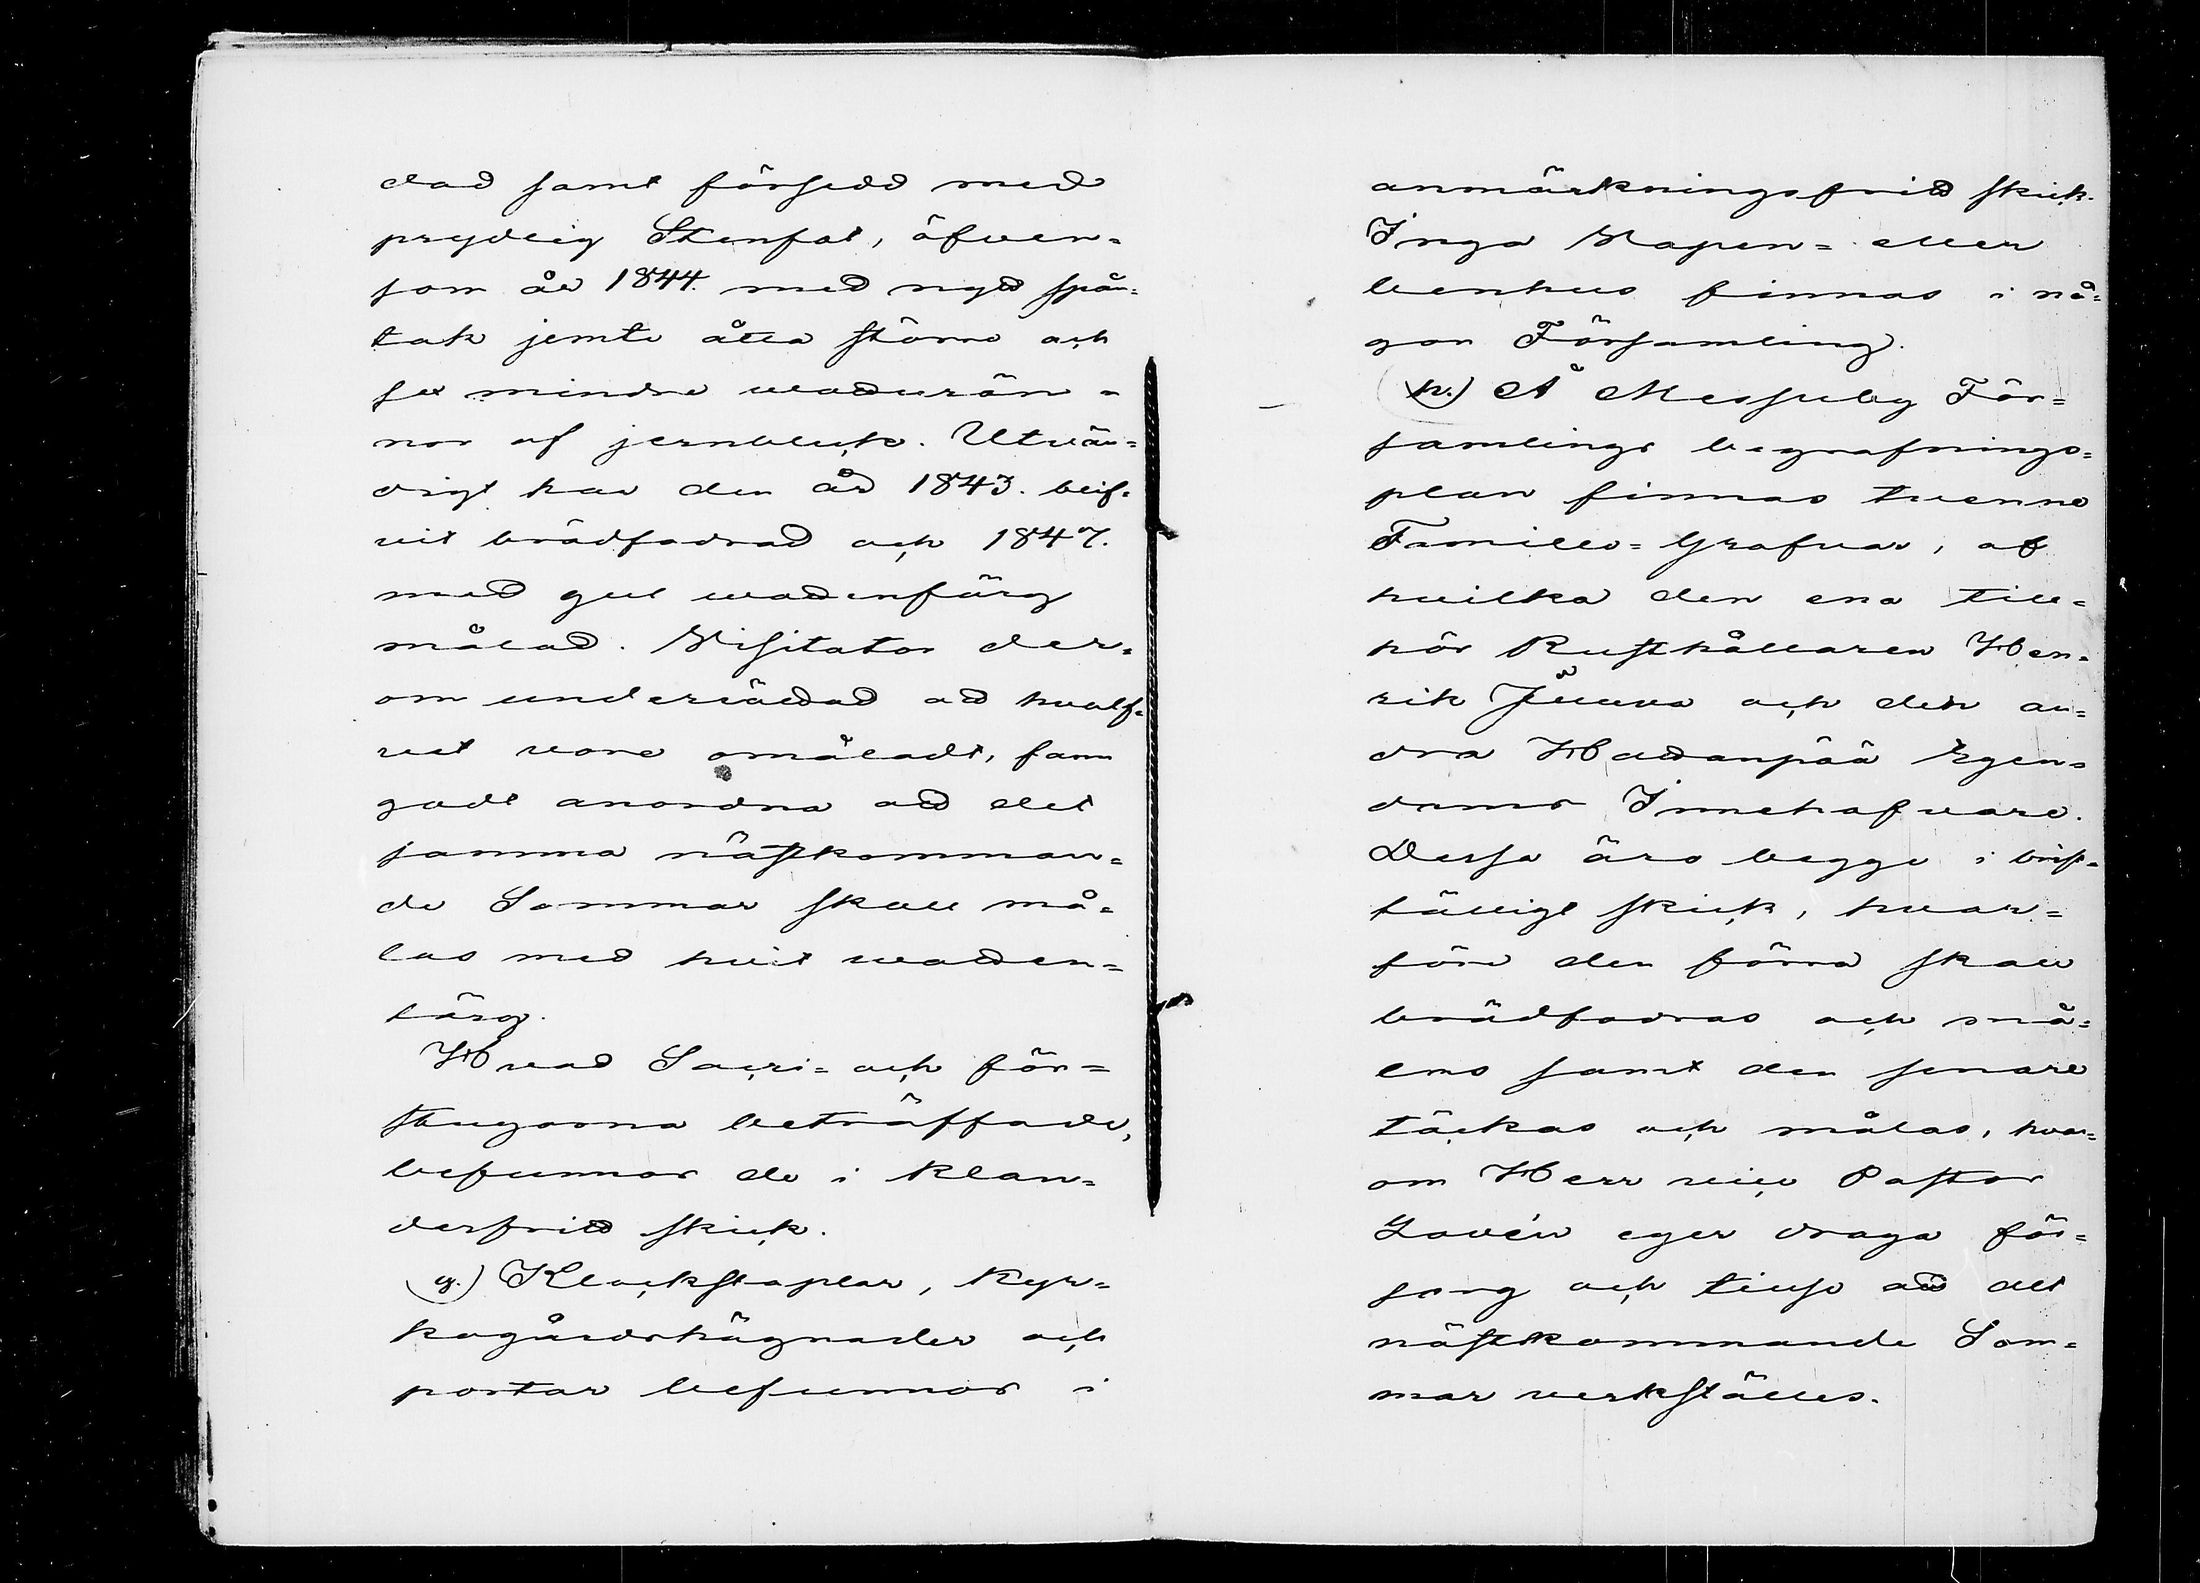 dad samt försedd med
prydlig Stenfot, äfven-
som år 1844. med nytt spån-
tak jemte åtta större och
sex mindre vatturän-
nor af jernbleck. Utvän-
digt har den år 1843. blif-
vit brädfodrad och 1847.
med gul vattenfärg
målad. Visitator der-
om underrättad att hvalf-
vet vore omåladt, fann
godt anordna att det
samma nästkomman-
de Sommar skall må-
las med hvit vatten-
färg.
Hvad Sacri- och för-
stugorna beträffade,
befunnos de i klan-
derfritt skick.
g.) Klockstaplar, kyr-
kogårdshägnader och
portar befunnos i
anmärkningsfritt skick.
Inga Vapen- eller
benhus finnas i nå-
gon Församling.
h.) Å Messuby För-
samlings begrafnings-
plan finnas tvenne
Famille-Grafvar, af
hvilka den ena till-
hör Rusthållaren Hen-
rik och den an-
dra Hatanpää Egen-
doms Innehafvare.
Dessa äro begge i brist-
fälligt skick, hvar-
före den förra skall
brädfodras och må-
las samt den senare
täckas och målas, hvar-
om Herr vice Pastor
Lovén eger draga för-
sorg och tillse att det
nästkommande Som-
mar verkställes.